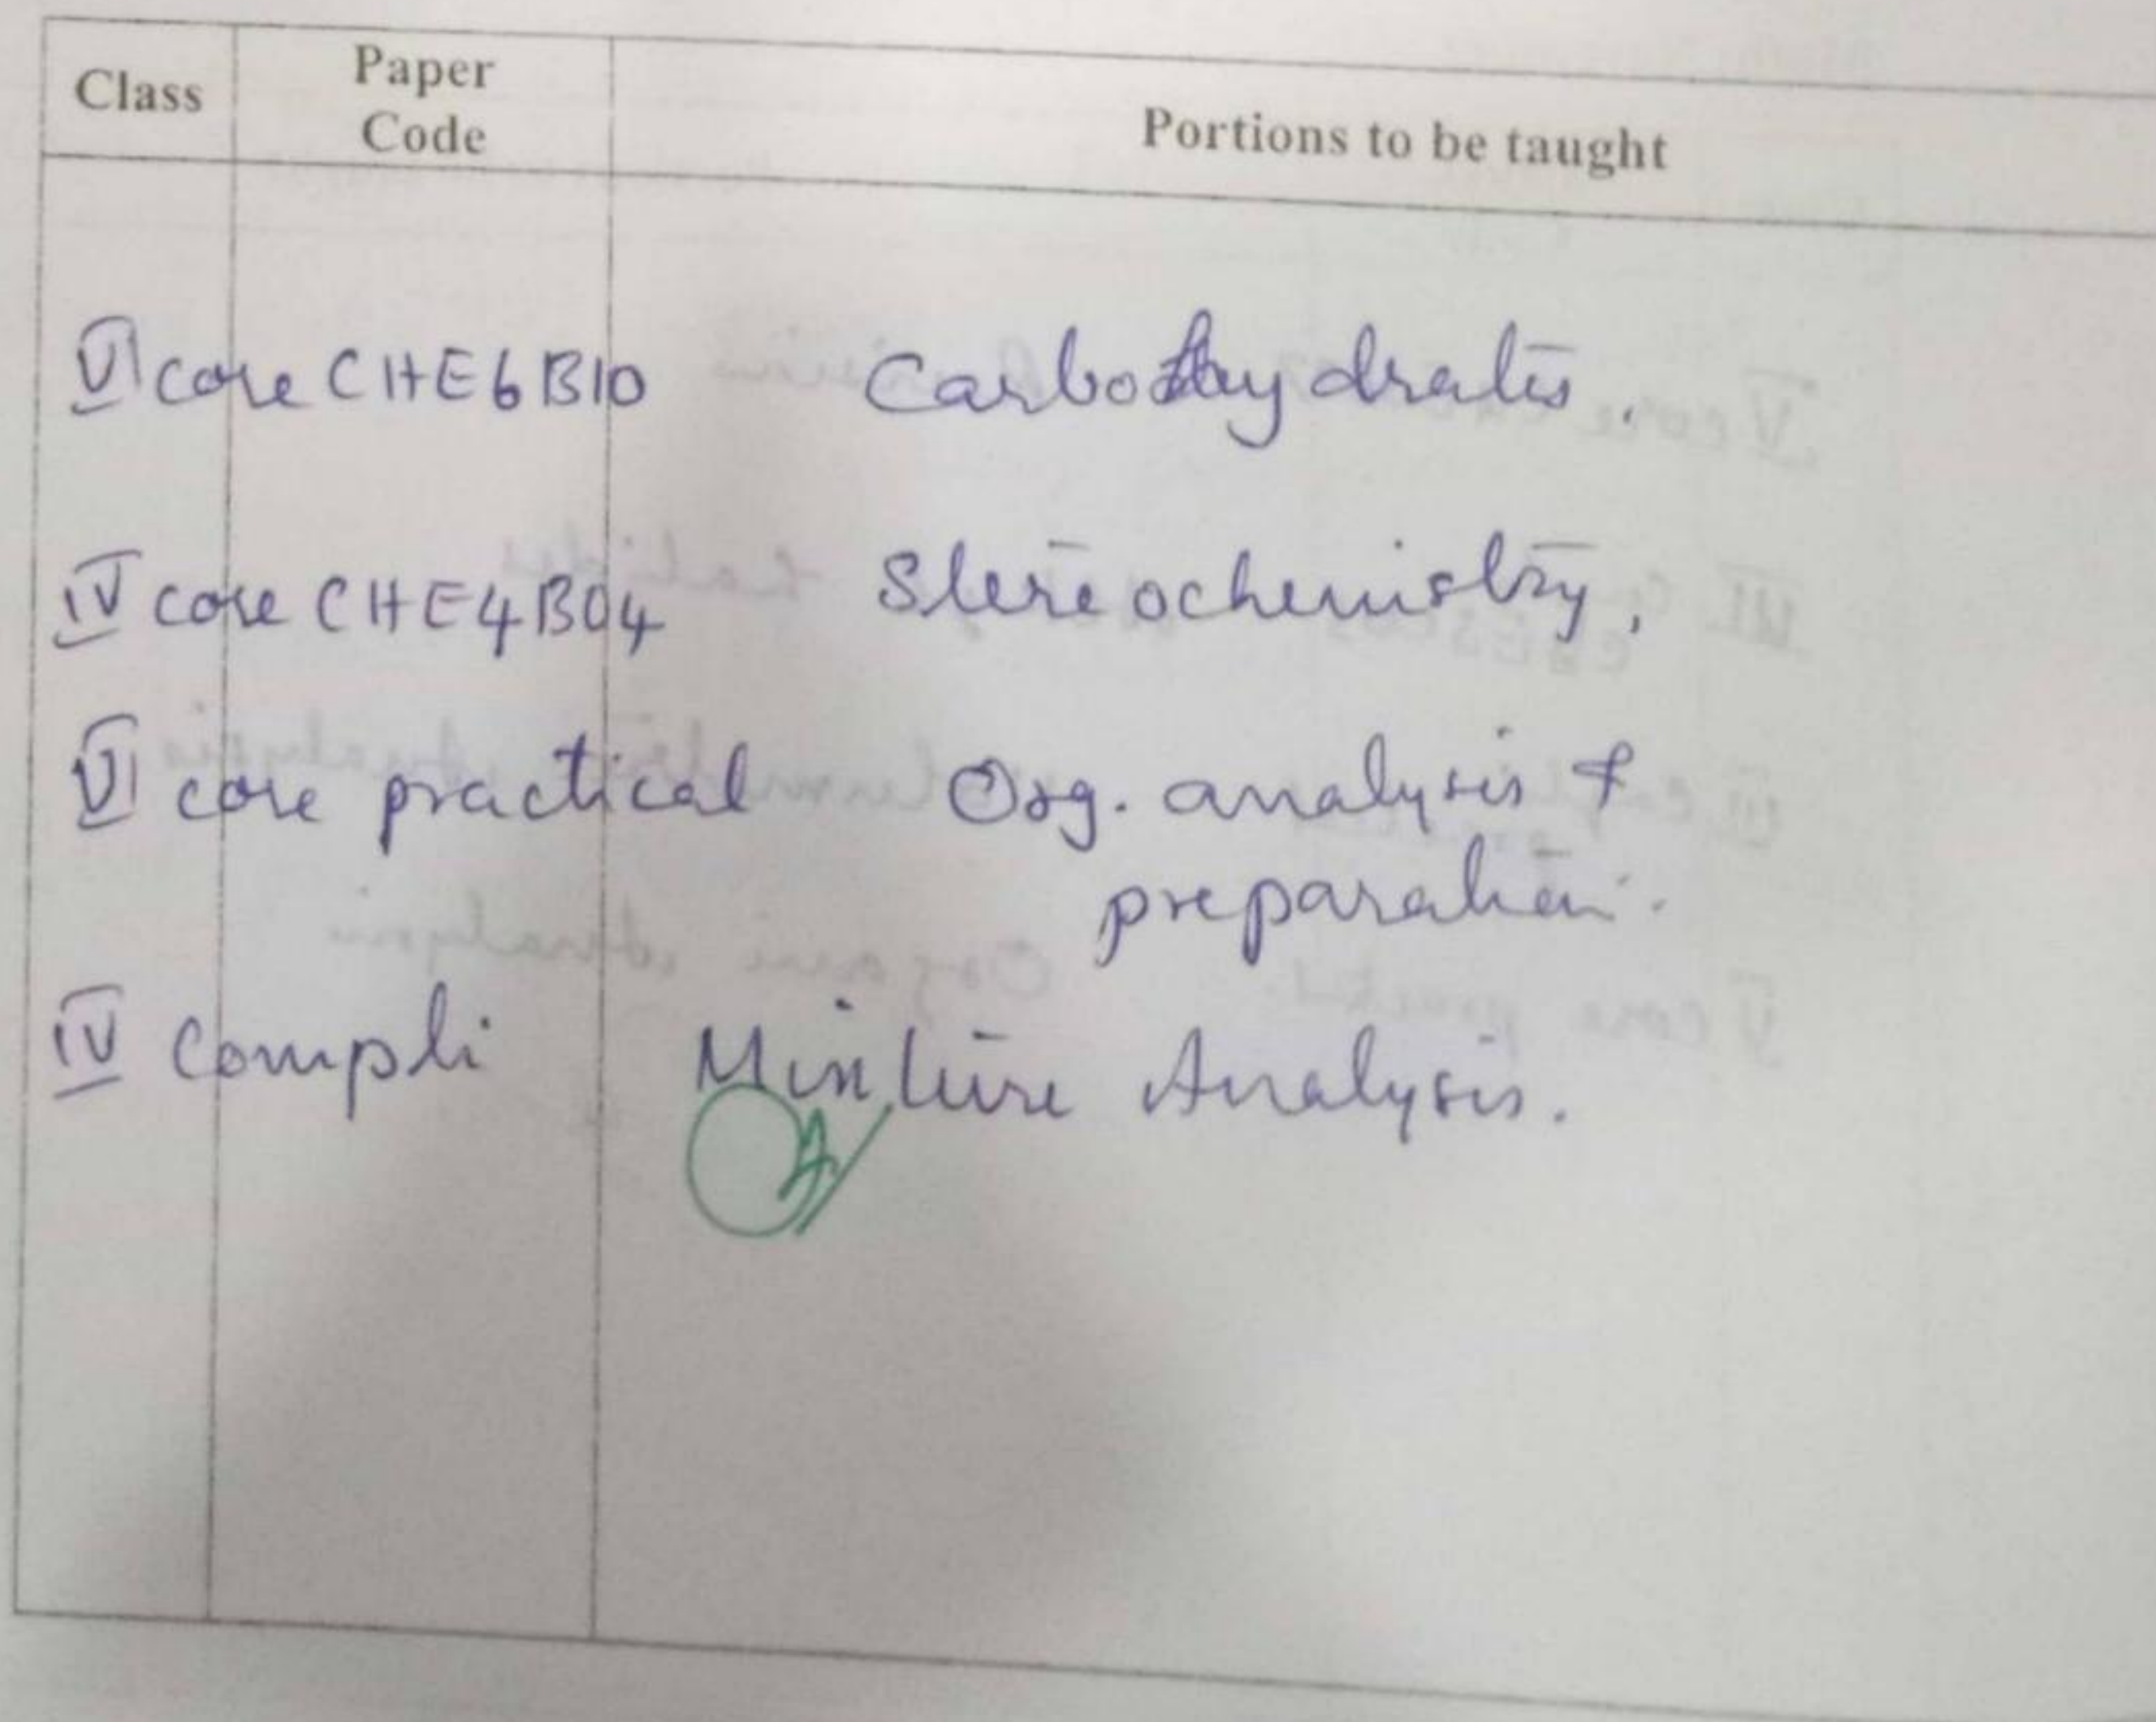 Class Paper Code Portions to be taught
VI core CHE6B10 Carbohydrates.
IV core CHE4B04 Stereochemistry,
VI core practical Org. analysis &
preparation.
IV Compli Mixture Analysis.